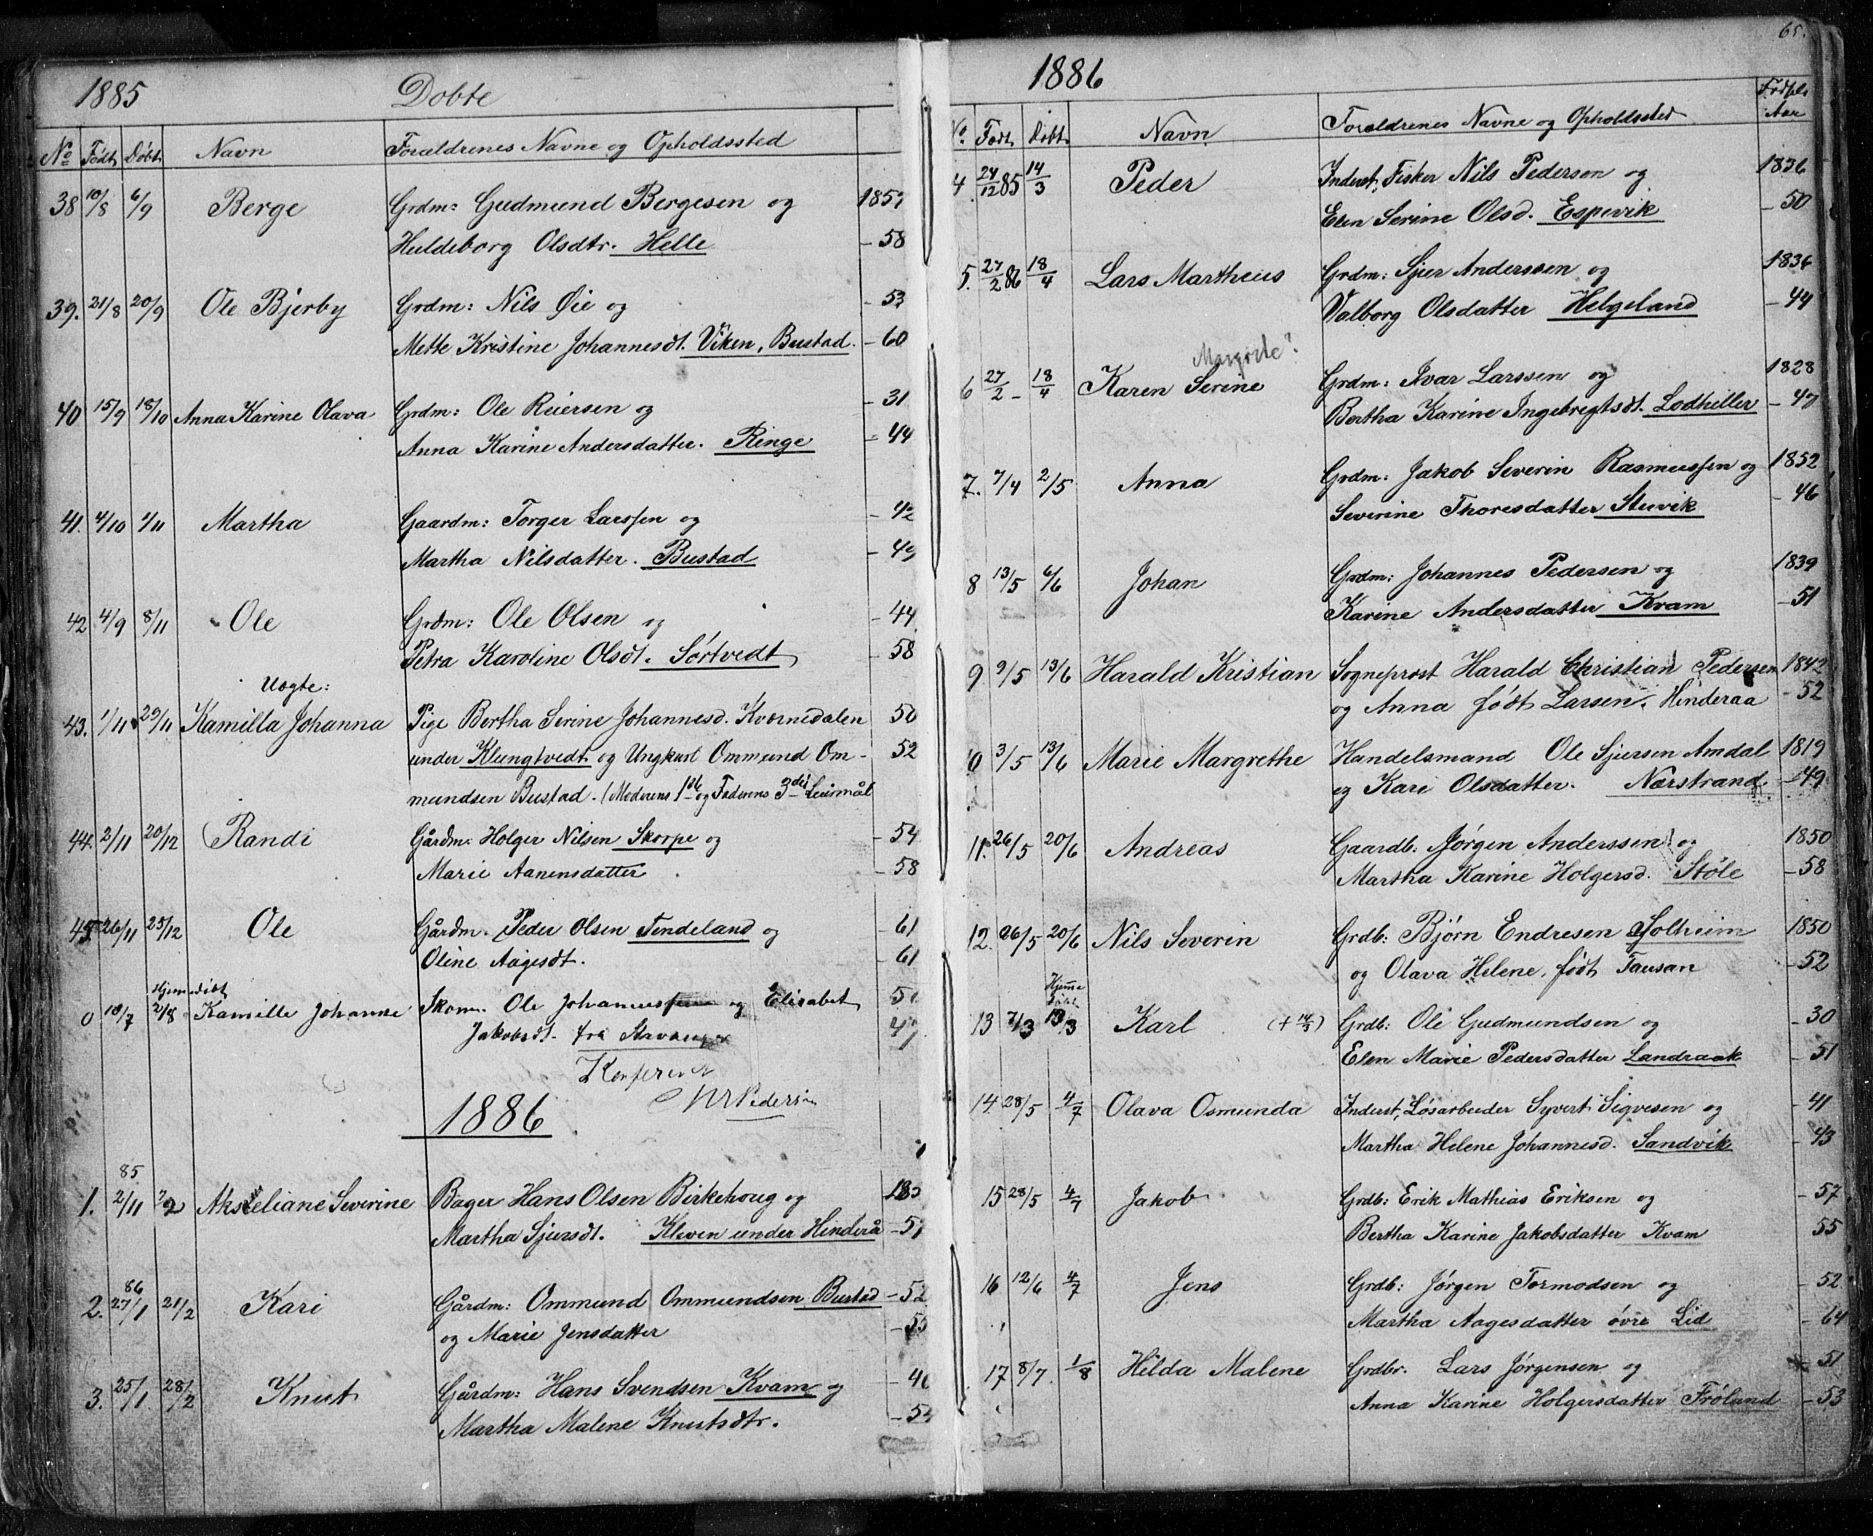 1885 Døbte
No Født Døbt Navn Forældrenes Navne og Opholdssted
38 10/8 6/9 Berge Grdm: Gudmund Bergesen og 1857
Huldeborg Olsdtr. Helle - 58
39. 21/8 20/9 Ole Bjerby Grdm: Nils Øie og - 53
Mette Kristine Johannesdt. Viken, Bustad. - 60
40 15/9 18/10 Anna Karine Olava Grdm: Ole Reiersen og - 31
Anna Karine Andersdatter. Ringe - 44
41. 4/10 1/11 Martha Gaardm: Torger Larssen og - 42
Martha Nilsdatter. Bustad - 49
42 4/9 8/11 Ole Grdm: Ole Olsen og - 44
Petra Karoline Olsdt. Sørtvedt - 58
Uægte:
43. 1/11 29/11 Kamilla Johanna Pige Bertha Serine Johannesd. Kværnedalen 50
under Klungtvedt og Ungkarl Ommund Om- 52
mundsen Bustad. (Moderens 1ste og Faderens 3die Leiermål
44. 2/11 20/12 Randi Gårdm. Holger Nilsen Skorpe og - 54
Marie Aanensdatter - 58
45 26/11 25/12 Ole Gårdm. Peder Olsen Tendeland og - 61
Oline Aagesdt. - 61
Hjemmedøbt
0 18/7 2/8 Kamille Johanne Skom. Ole Johannessen og Elisabet 51
Jakobsdt. fra Stavanger
Konfereret
Pedersen
1886
85
1. 2/11 2/2 Akseliane Severine Bager Hans Olsen Birkehoug og
Martha Sjursdt. Kleven under Hinderå - 57
86
2. 27/1 21/2 Kari Gårdm: Ommund Ommundsen Bustad - 52
og Marie Jensdatter - 55
3. 25/1 28/2 Knut Gårdm: Hans Svendsen Kvam og
Martha Malene Knutsdtr.
65.
1886
No Født Døbt Navn Forældrenes Navne og Opholdssted Fødsels Aar
4 27/12 85 14/3 Peder Inderst, Fisker Nils Pedersen og 1836
Elen Serine Olsd. Espevik - 50
5. 27/2 86 18/4 Lars Martheus Grdm: Sjur Anderssen og 1836
Valborg Olsdatter Helgeland - 44
Margrete?
6 27/2 - 18/4 Karen Serine Grdm: Ivar Larssen og 1828
Bertha Karine Ingebregtsdt. Lodhiller - 47
7. 7/4 2/5 Anna Grdm: Jakob Severin Rasmussen og 1852
Severine Thoresdatter Stuvik - 46
8 13/5 6/6 Johan Grdm: Johannes Pedersen og 1839
Karine Andersdatter Kvam - 51
9 9/5 13/6 Harald Kristian Sogneprest Harald Christian Pedersen 1842
og Anna født Larsen. Hinderaa - 52
0 3/5 13/6 Marie Margrethe Handelsmand Ole Sjursen Amdal 1819
og Kari Olsdatter. Nærstrand - 49
11. 26/5 20/6 Andreas Gaardb. Jørgen Anderssen og 1850
Martha Karine Holgersd. Støle - 58
12. 26/5 20/6 Nils Severin Grdb: Bjørn Endresen Solheim 1850
og Olava Helene, født Tausan - 52
Hjemme
døbt
13 7/3 13/3 Karl (+ 14/3) Grdb: Ole Gudmundsen og - 30
Elen Marie Pedersdatter Landraak - 51
14. 28/5 4/7 Olava Osmunda Inderst, Løsarbeider Syvert Sigvesen og - 41
Martha Helene Johannesd. Sandvik - 43
15 28/5 4/7 Jakob Grdb: Erik Mathias Eriksen og - 57
Bertha Karine Jakobsdatter Kvam 55
16 12/6 4/7 Jens Grdb: Jørgen Tormodsen og - 52
Martha Aagesdatter øvre Lid - 64
17 8/7. 1/8 Hilda Malene Grdbr. Lars Jørgensen og - 51
Anna Karine Holgersdatter Frøland - 53